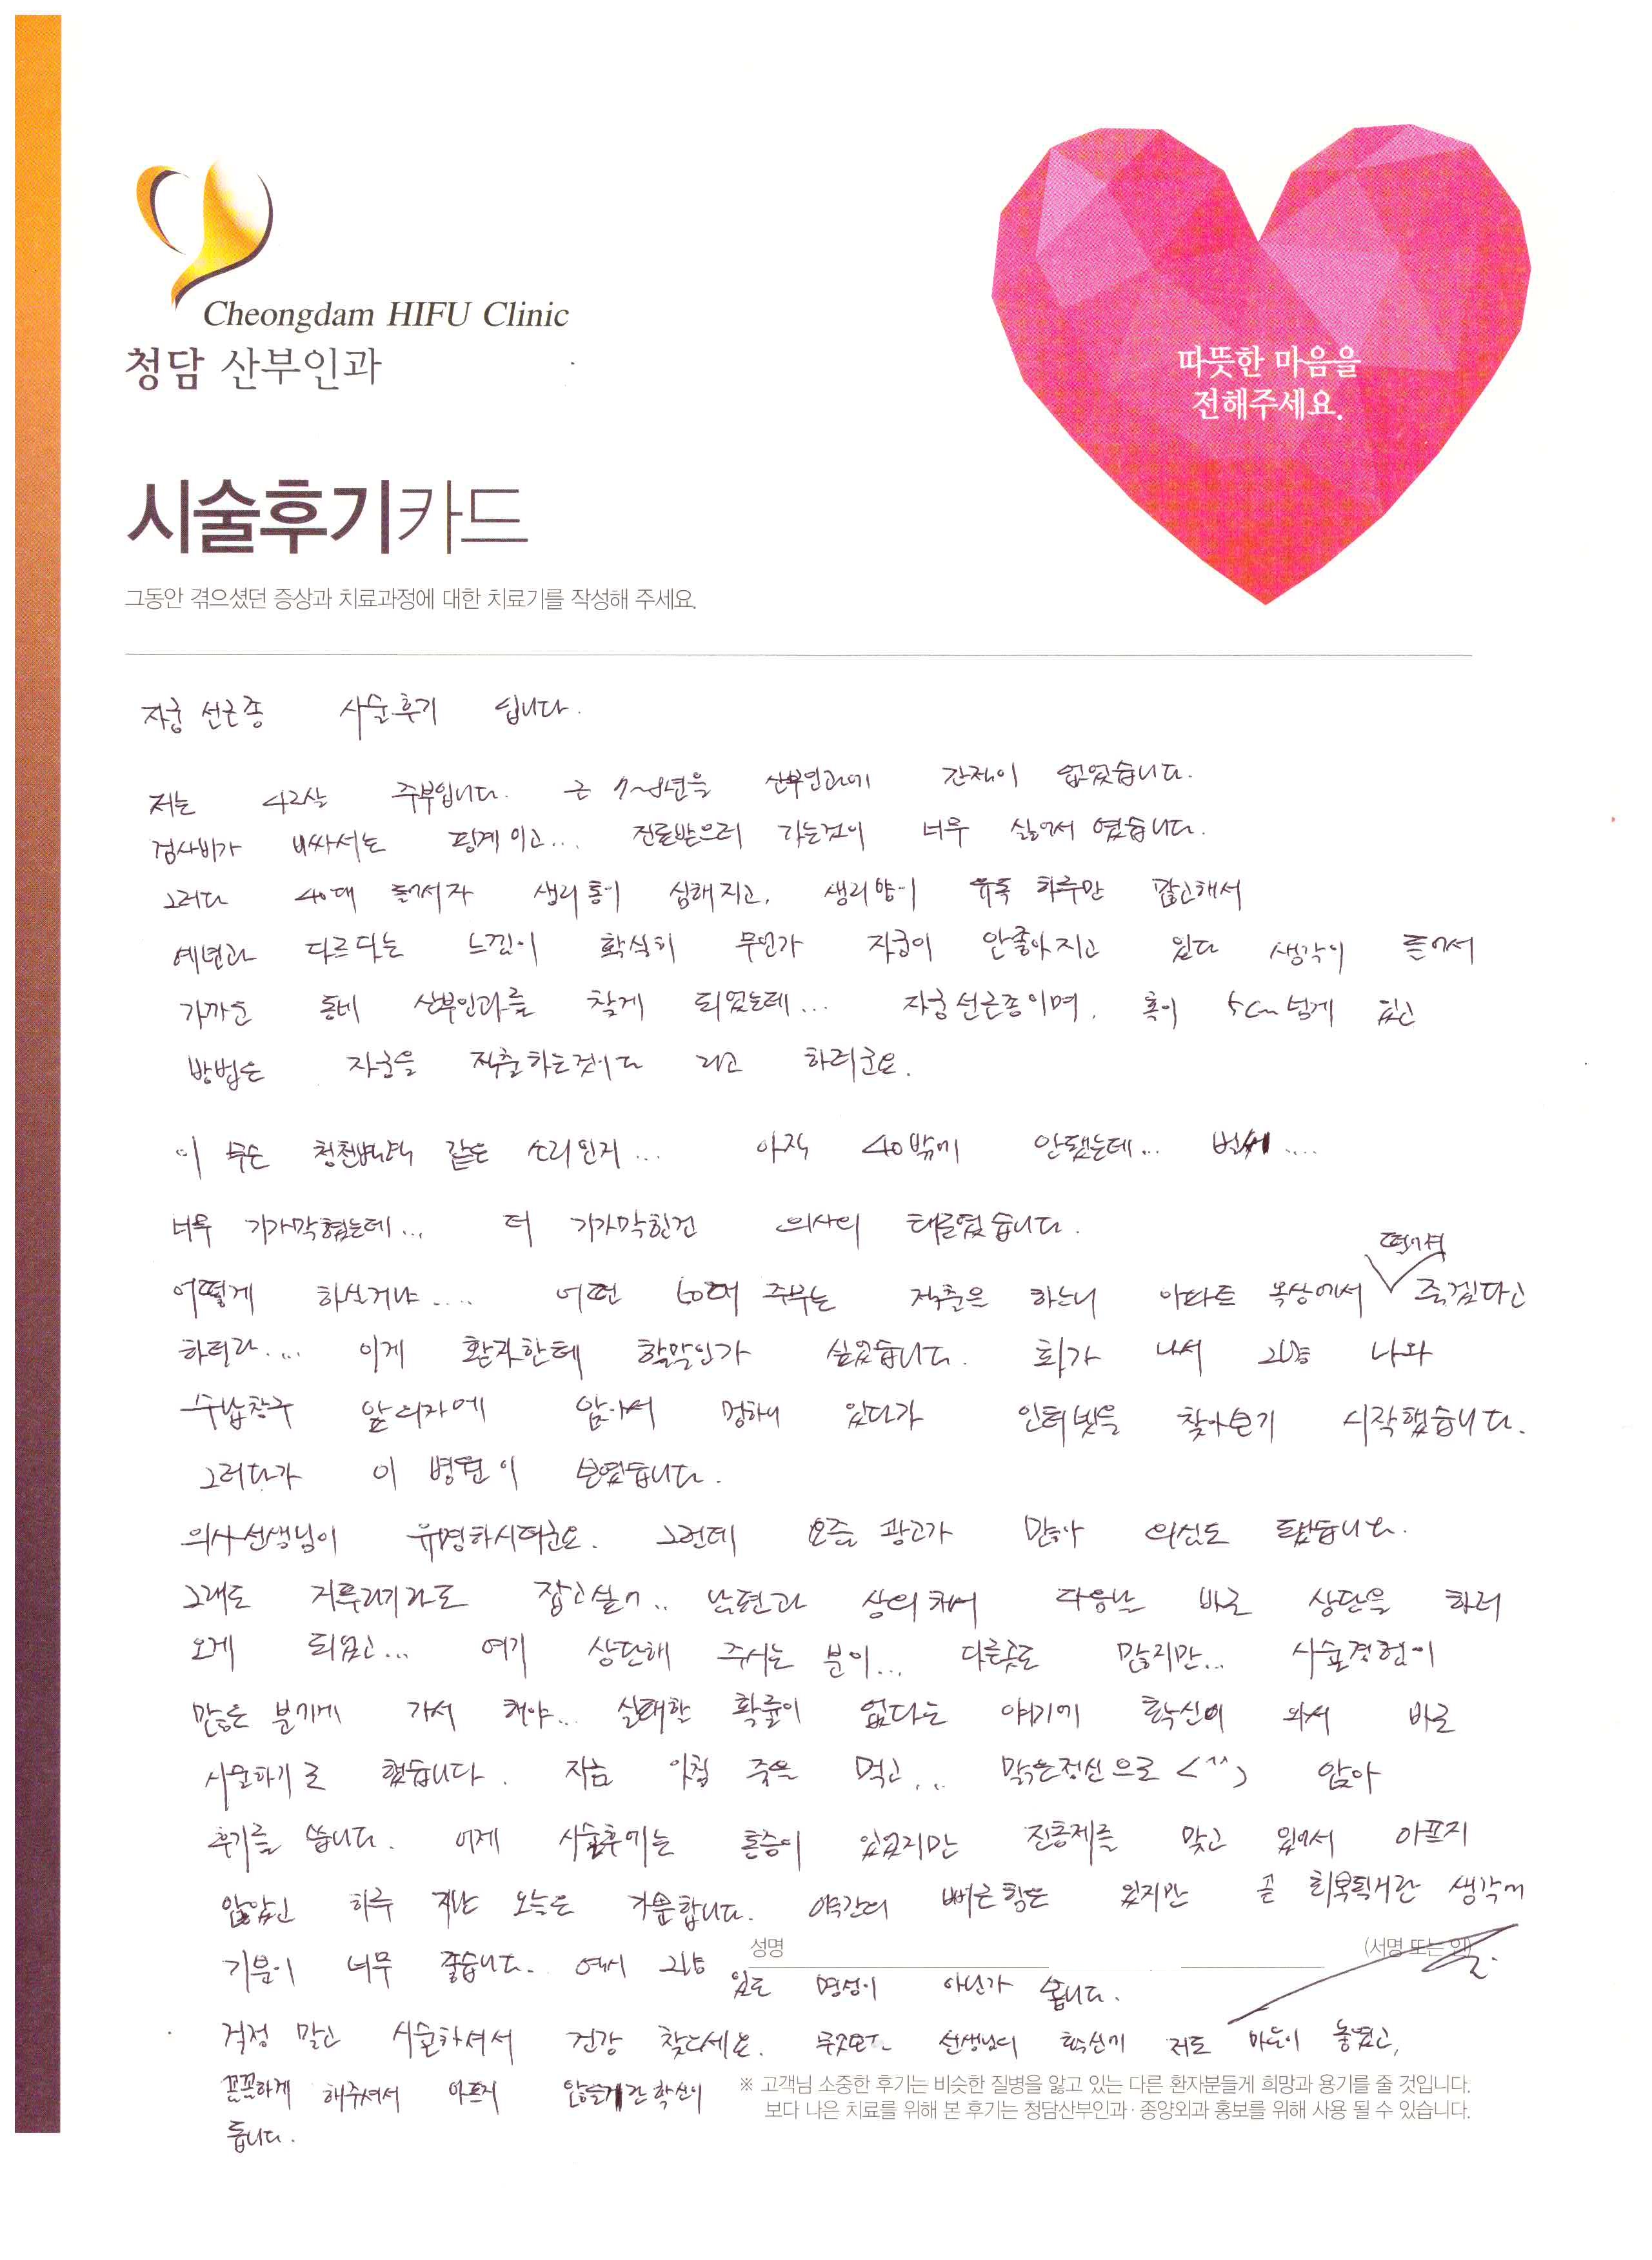 Cheongdam HIFU Clinic
청담 산부인과
따뜻한 마음을
전해주세요.
시술후기카드
그동안 겪으셨던 증상과 치료과정에 대한 치료기를 작성해 주세요.
자궁 선근종 시술후기 입니다.
저는 42살 주부입니다. 근 7~8년을 산부인과에 간적이 없었습니다.
검사비가 비싸서는 핑계이고... 진료받으러 가는것이 너무 싫어서 였습니다.
그러다 40대 들어서자 생리통이 심해지고, 생리양이 유독 하루만 많고해서
예년과 다르다는 느낌이 확실히 무언가 자궁이 안좋아지고 있다 생각이 들어서
가까운 동네 산부인과를 찾게 되었는데... 자궁선근종이며, 혹이 5cm 넘게 있고
방법은 자궁을 적출하는것이다 라고 하더군요.
이 무슨 청천벽력 같은 소리인지... 아직 40밖에 안됐는데... 벌써....
너무 기가막혔는데... 더 기가막힌건 의사의 태도였습니다.
어떻게 하실거냐.... 어떤 60대 주부는 적출을 하느니 아파트 옥상에서 떨어져 죽겠다고
하더라.... 이게 환자한테 할말인가 싶었습니다. 화가 나서 그냥 나와
수납창구 앞의자에 앉아서 멍하니 있다가 인터넷을 찾아보기 시작했습니다.
그러다가 이 병원이 보였습니다.
의사선생님이 유명하시더군요. 그런데 요즘 광고가 많아 의심도 됐습니다.
그래도 지푸라기라도 잡고싶어.. 남편과 상의하여 다음날 바로 상담을 하러
오게 되었고... 여기 상담해 주시는 분이... 다른곳도 많지만... 시술경험이
많은 분에게 가서 해야... 실패할 확률이 없다는 얘기에 확신이 와서 바로
시술하기로 했습니다. 지금 아침 죽을 먹고... 맑은정신으로 (^^) 앉아
후기를 씁니다. 어제 시술후에는 통증이 있었지만 진통제를 맞고 있어서 아프지
않았고 하루 지난 오늘은 가뿐합니다. 약간의 뻐근함은 있지만 곧 회복될거란 생각에
기분이 너무 좋습니다. 역시 그냥 있는 명성이 아닌가 봅니다.
성명 (서명 또는 인)
걱정 말고 시술하셔서 건강 찾으세요. 무엇보다 선생님의 확신에 저도 마음이 놓였고,
꼼꼼하게 해주셔서 아프지 않을거란 확신이
듭니다.
※ 고객님 소중한 후기는 비슷한 질병을 앓고 있는 다른 환자분들게 희망과 용기를 줄 것입니다.
보다 나은 치료를 위해 본 후기는 청담산부인과·종양외과 홍보를 위해 사용 될 수 있습니다.